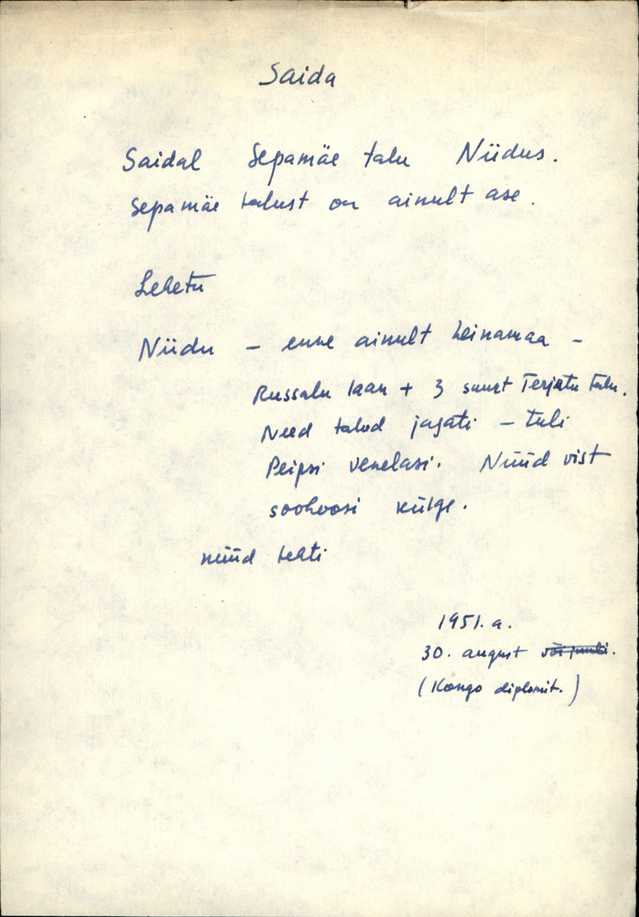 Saida
Saidal Sepamäe talu Niidus.
Sepamäe talust on ainult ase.
Lehetu
Niidu – enne ainult heinamaa –
Russalu laan + 3 suurt Terjatu talu.
Need talud jagati – tuli
Peipsi venelasi. Nüüd vist
sovhoosi külge.
nüüd tehti
1951. a.
30. august
(Kongo diplomit.)